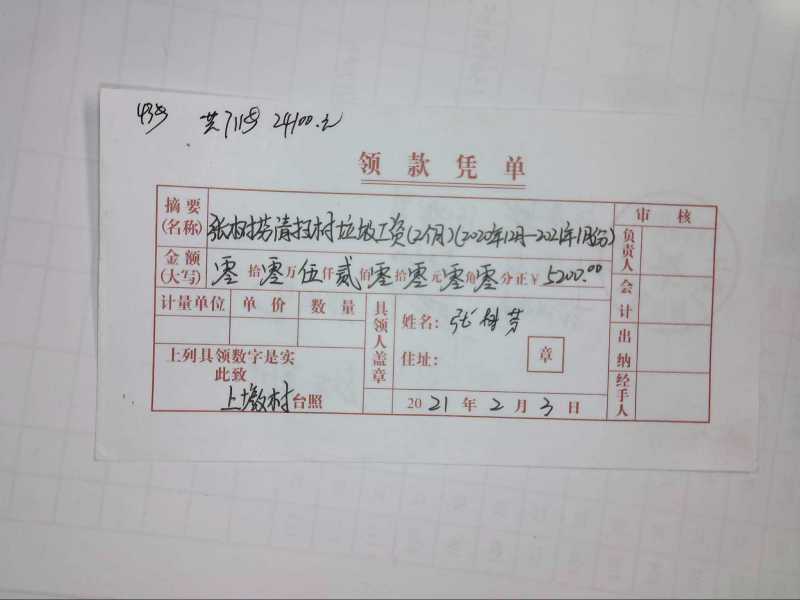 43号 共711号 24100.元
领款凭单
摘要(名称) 张树芬清扫村垃圾工资(2个月)(2020年12月-2021年1月份) 审核
金额(大写) 零拾零万伍仟贰佰零拾零元零角零分正¥5200.00 负责人
计量单位 单价 数量 具领人盖章 姓名: 张树芬 会计
住址: 章 出纳
上列具领数字是实
此致
上墩村台照 2021年2月3日 经手人